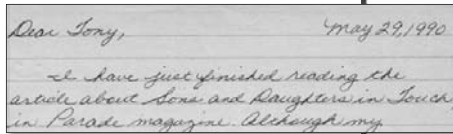 Dear Tony, May 29, 1990
I have just finished reading the
article about Sons and Daughters in Touch
in Parade magazine. Although my